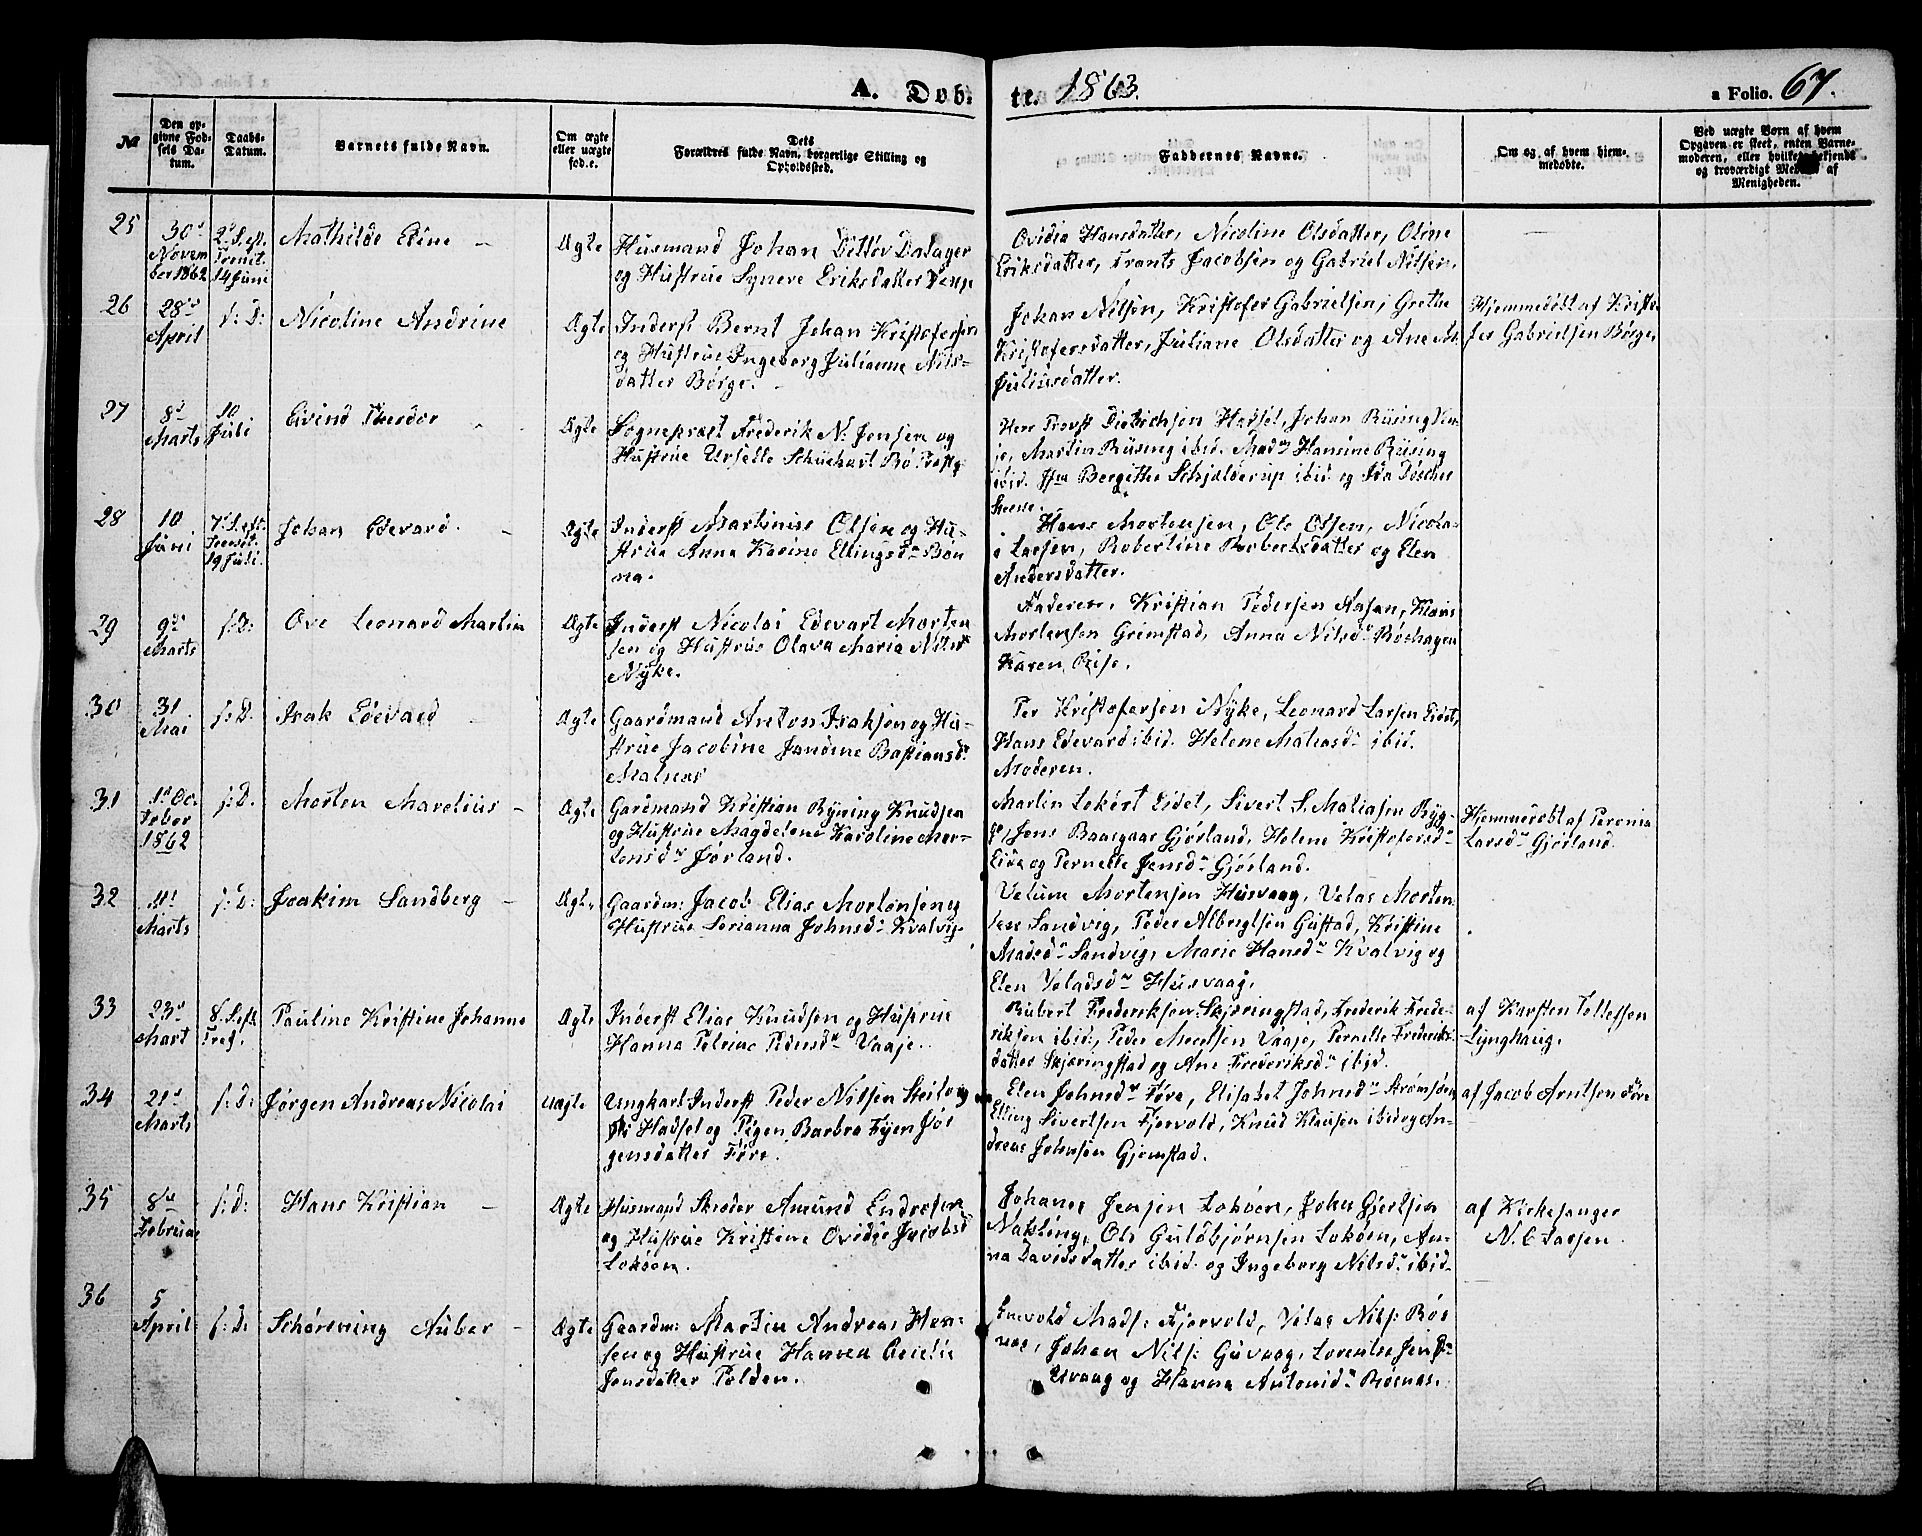 A. Døb. te. 1863. a Folio. 67.
№
Den op-
givne Fød-
sels Da-
tum.
Daabs-
Datum.
Barnets fulde Navn.
Om ægte
eller uægte
fød.e.
Dets
Forældres fulde Navn, borgerlige Stilling og
Opholdssted.
Faddernes Navne.
Om og af hvem hjem-
medøbte.
Ved uægte Børn af hvem
Opgaven er skeet, enten Barne-
moderen, eller hvilket bekjendt
og troværdigt Medlem af
Menigheden.
25
30te
Novem
ber 1862
2d S. eft.
Trenit.
14 Juni
Mathilde Edine
Ægte
Husmand Johan Detlöv Dalager
og Hustrue Synere Eriksdatter
Ovidia Hansdatter, Nicoline Olsdatter, Oline
Eriksdatter, Frants Jacobsen og Gabriel Nilsen.
26
28de
April
s: D:
Nicoline Andrine
Ægte
Inderst Bernt Johan Kristofersen
og Hustrue Ingeborg Julianne Nils-
datter Børge.
Johan Nilsen, Kristofer Gabrielsen, Grethe
Kristofersdatter, Juliane Olsdatter og Ane
Juliusdatter.
Hjemmedøbt af Kristo
fer Gabrielsen Børge
27
8d
Marts
10
Juli
Eivind Theodor
Ægte
Sognepræst Frederik N. Jensen og
Hustrue Urselle Schuchart Bø Præstg
Herr Provst Dietrichsen Hadsel, Johan Rüsing
Martin Rüsing ibid. Madm Hansine Rüsing
ibid. Jfm Bergitte Schjelderup ibid og Ida Döscher
Steene.
28
10
Juni
7d S. eft.
Treenit.
19 Juli.
Johan Edevard
Ægte
Inderst Martinus Olsen og Hu-
strue Anna Karine Ellingsdr Bøn
na.
Hans Mortensen, Ole Olsen, Nicola-
i Larsen, Robertine Robertsdatter og Elen
Andersdatter.
29
9de
Marts
s: D:
Ove Leonard Martin
Ægte
Inderst Nicolai Edevart Morten
sen og Hustrue Olava Maria Nilsdr
Nyke.
Faderen, Kristian Pedersen Aasan, Klaus
Mortensen Grimstad, Anna Nilsdr Bøehagen
Karen
30
31
Mai
s: D.
Isak Edevard
Ægte
Gaardmand Anton Isaksen og Hu-
strue Jacobine Jandine Bastiansdr
Malnes
Per Kristofersen i Nyke, Leonard Larsen Eidet,
Hans Edevard ibid. Helene Matiasdr ibid.
Moderen.
31
1d Oc-
tober
1862
s: D.
Morten Marelius
Ægte
Gardmand Kristian Ryning Knudsen
og Hustrue Magdelene Karoline Mor-
tensdr Jørland.
Martin Lokert Eidet, Sivert S. Matiasen Ryg-
ge, Jens Baasgaar Gjørland, Helene Kristofersdr
Eide og Pernelle Jensdr Gjørland.
Hjemmedøbt af Peronia
Larsdr Gjørland.
32
11d
Marts
s: D:
Joakim Sandberg
Ægte
Gaardm: Jacob Elias Mortensen og
Hustrue Serianna Johnsdr Kvalvig.
Velum Mortensen Husvaag, Velas Morten-
sen Sandvig, Peder Albregtsen Gustad, Kristine
Madsdr Sandvig, Marie Hansdr Kvalvig og
Elen Veladsdr Husvaag.
33
23d
Mart
8. S. eft
Tref.
Pauline Kristine Johanna
Ægte
Inderst Elias Knudsen og Hustrue
Hanna Petrine Pedersdr Vaaje.
Rubert Frederiksen Skjøringstad, Frederik Frede-
riksen ibid., Peder Mortsen Vaaje, Pernelle Frederiks-
datter Skjøringstad og Ane Frederiksdr ibid.
af Karsten Tollefsen
Lynghaug.
34
21d
Marts
s: D:
Jørgen Andreas Nicolai
Uægte
Ungkarl Inderst Peder Nilsen Steilog
Hadsel og Pigen Barbra Fyen Jør
gensdatter Føre.
Elen Johnsdr Føre, Elisabet Johnsdr Strømsøen
Elling Sivertsen Fjervold, Knud Klausen ibid og An-
dreas Johnsen Gjemstad.
af Jacob Arntsen Føre
35
8de
Februar
s: D:
Hans Kristian
Ægte
Husmand Skreder Amund Endresen
og Hustrue Kristene Ovidie Jacobsdr
Lokøen.
Johanes Jensen Lokøen, Joker Gjertsen
Nakling, Ole Guldbjørnsen Lokøen, An-
na Davidsdatter ibid. og Ingeborg Nilsdr ibid.
af Kirkesanger
N. C. Larsen.
36
5
April
s: D:
Schørening Auber
Ægte
Gaardm: Martin Andreas Han-
sen og Hustrue Hansen Cecelie
Jensdatter Polden.
Enevold Mads: Fjervold, Velas Nils: Røs
nes, Johan Nils: Guvaag, Lorentse Jensdr
Uvaag og Hanna Antonidr Røsnes.